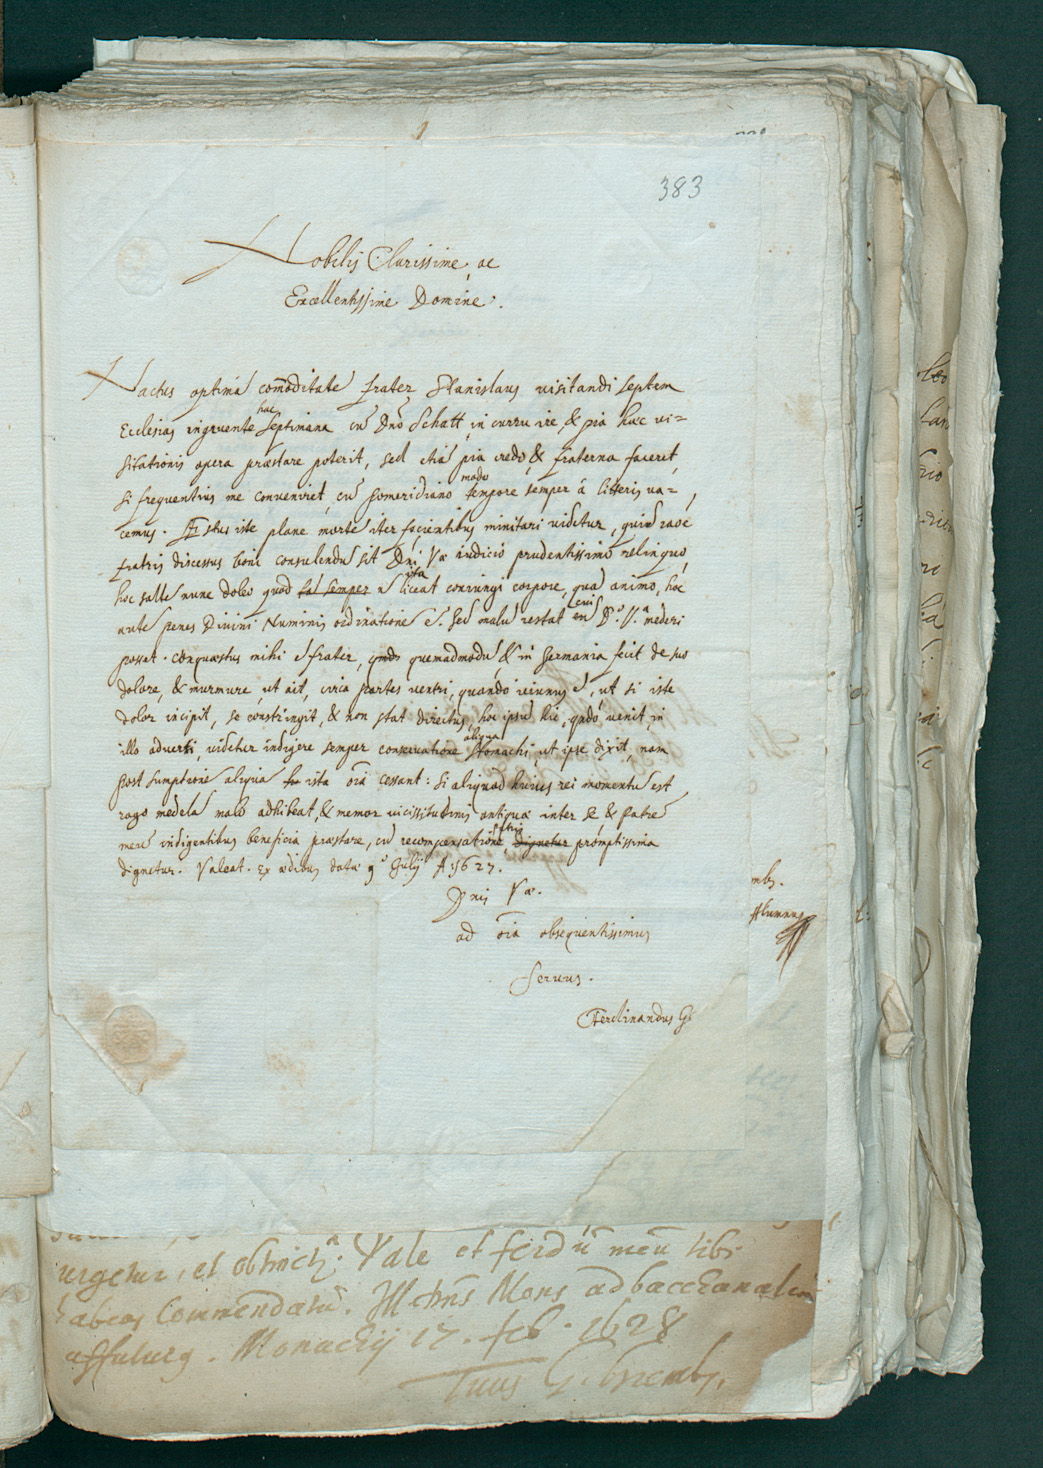 383
Nobilis Clarissime, ac
Excellentissime Domine.
Nactus optimā com̄oditatē frater Stanislaus visitandi septem
Ecclesias ingruente hac septimana cū Dnō Schatt in curru ire, & pia hac vi=
sitationis opera præstare poterit, sed etiā pia credo & fraterna faceret,
si frequentius me conveniret, cū pomeridiano modo tempore semper à litteris va=
cemus. Æstus iste plane mortē iter facientibus minitari videtur, quid
fratris discessus boni consulendū sit Dni Væ iudicio prudentissimo relinquo,
hoc saltē nunc doleo quod tal semper n ita liceat coniungi corpore, quā animo, hoc
ante penes Divini Numinis ordinationē ē. Sed malū restat cui D. V.ª mederi
possat. conquæstus mihi ē frater, quemadmodū & in Germania fecit de suo
dolore, & murmure, ut ait, circa partes ventri, quando ieiunus ē, ut si iste
dolor incipit, se constringit, & non stat directus, hoc ipsū hic, qndō venit, in
illo adverti, videtur indigere semper aliqua conservatione stomachi, ut ipse dixit, nam
post sumptionē aliqua ista oīa cessant: si aliquod huius rei momentū est
rogo medelā malo adhibeat, & memor vicissitudinis antiquæ inter se & patrē
meū indigentibus beneficia præstare, cū recompensatione patris dignetur promptissima
dignetur. Valeat. Ex ædibus datæ 9º Julij Aº 1627.
Dnis Væ.
ad oīa obsequentissimus
servus.
Ferdinandus G
mb.
Alumnus
urgetur, et obstrict. Vale et ferdū meū tibi
habeas commendatū. Mons ad bacchanalia
Monachij 17. feb. 1628
Tuus G.